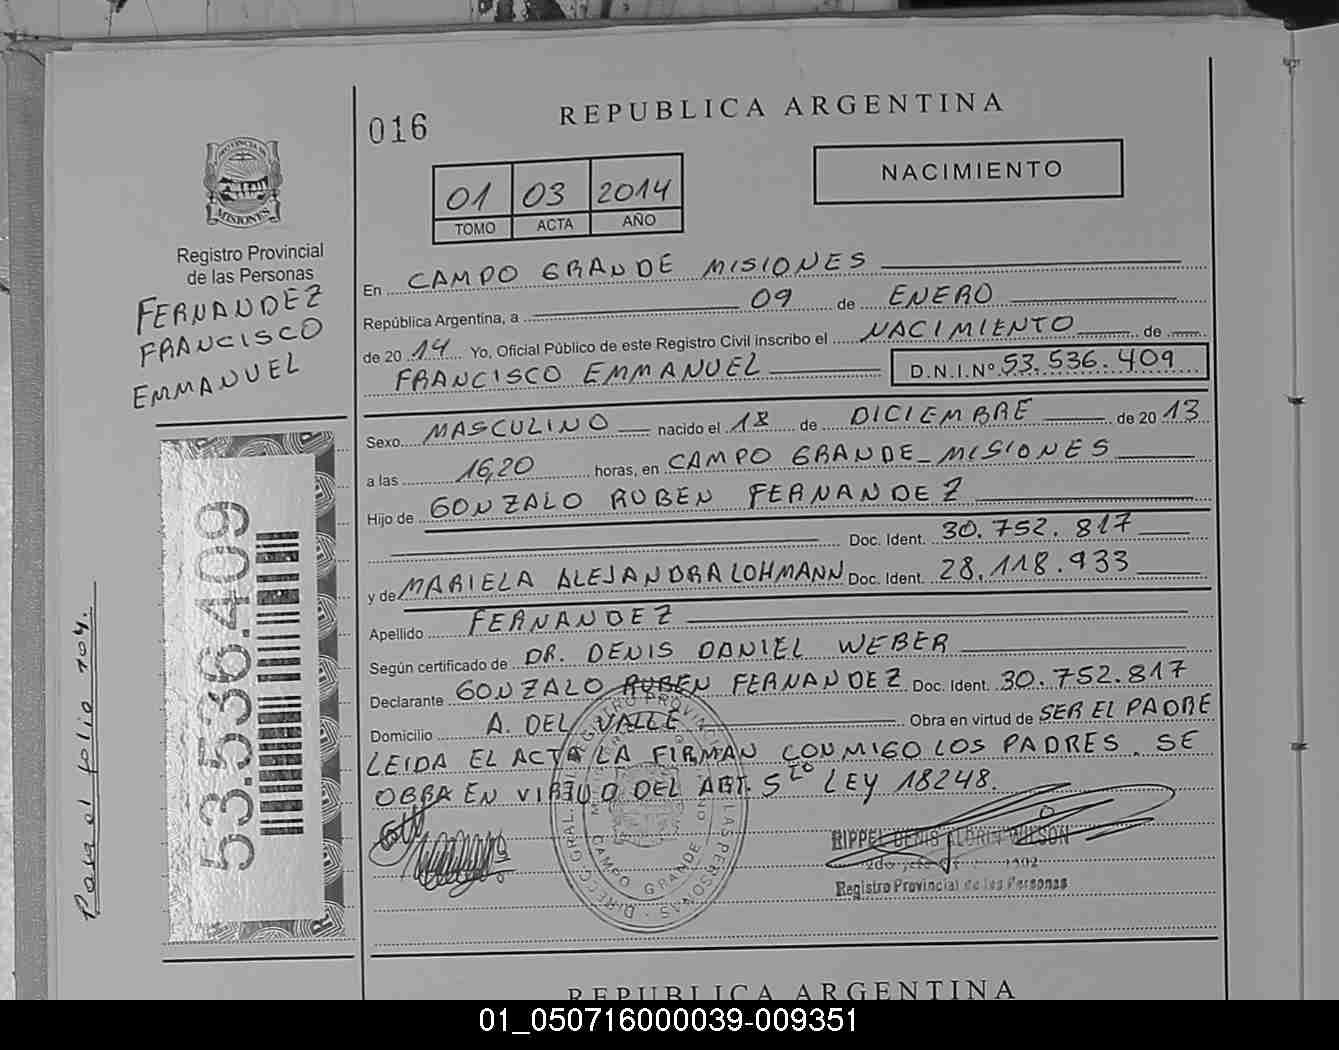 016
REPUBLICA ARGENTINA
PROVINCIA DE
MISIONES
01 03 2014
TOMO ACTA AÑO
NACIMIENTO
Registro Provincial
de las Personas
FERNANDEZ
FRANCISCO
EMMANUEL
En CAMPO GRANDE MISIONES
República Argentina, a 09 de ENERO
de 2014 Yo, Oficial Público de este Registro Civil inscribo el NACIMIENTO de
FRANCISCO EMMANUEL D.N.I.Nº 53.536.409
Sexo MASCULINO nacido el 18 de DICIEMBRE de 2013
a las 16,20 horas, en CAMPO GRANDE - MISIONES
Hijo de GONZALO RUBEN FERNANDEZ
Doc. Ident. 30.752.817
y de MARIELA ALEJANDRA LOHMANN Doc. Ident. 28.118.933
Apellido FERNANDEZ
Según certificado de DR. DENIS DANIEL WEBER
Declarante GONZALO RUBEN FERNANDEZ Doc. Ident. 30.752.817
Domicilio A. DEL VALLE Obra en virtud de SER EL PADRE
LEIDA EL ACTA LA FIRMAN CONMIGO LOS PADRES. SE
OBRA EN VIRTUD DEL ART. 5to LEY 18248.
53.536.409
Pasa al folio 104.
CAMPO GRANDE
LAS PERSONAS
RIPPEL DENIS WILSON
Registro Provincial de las Personas
REPUBLICA ARGENTINA
01_050716000039-009351